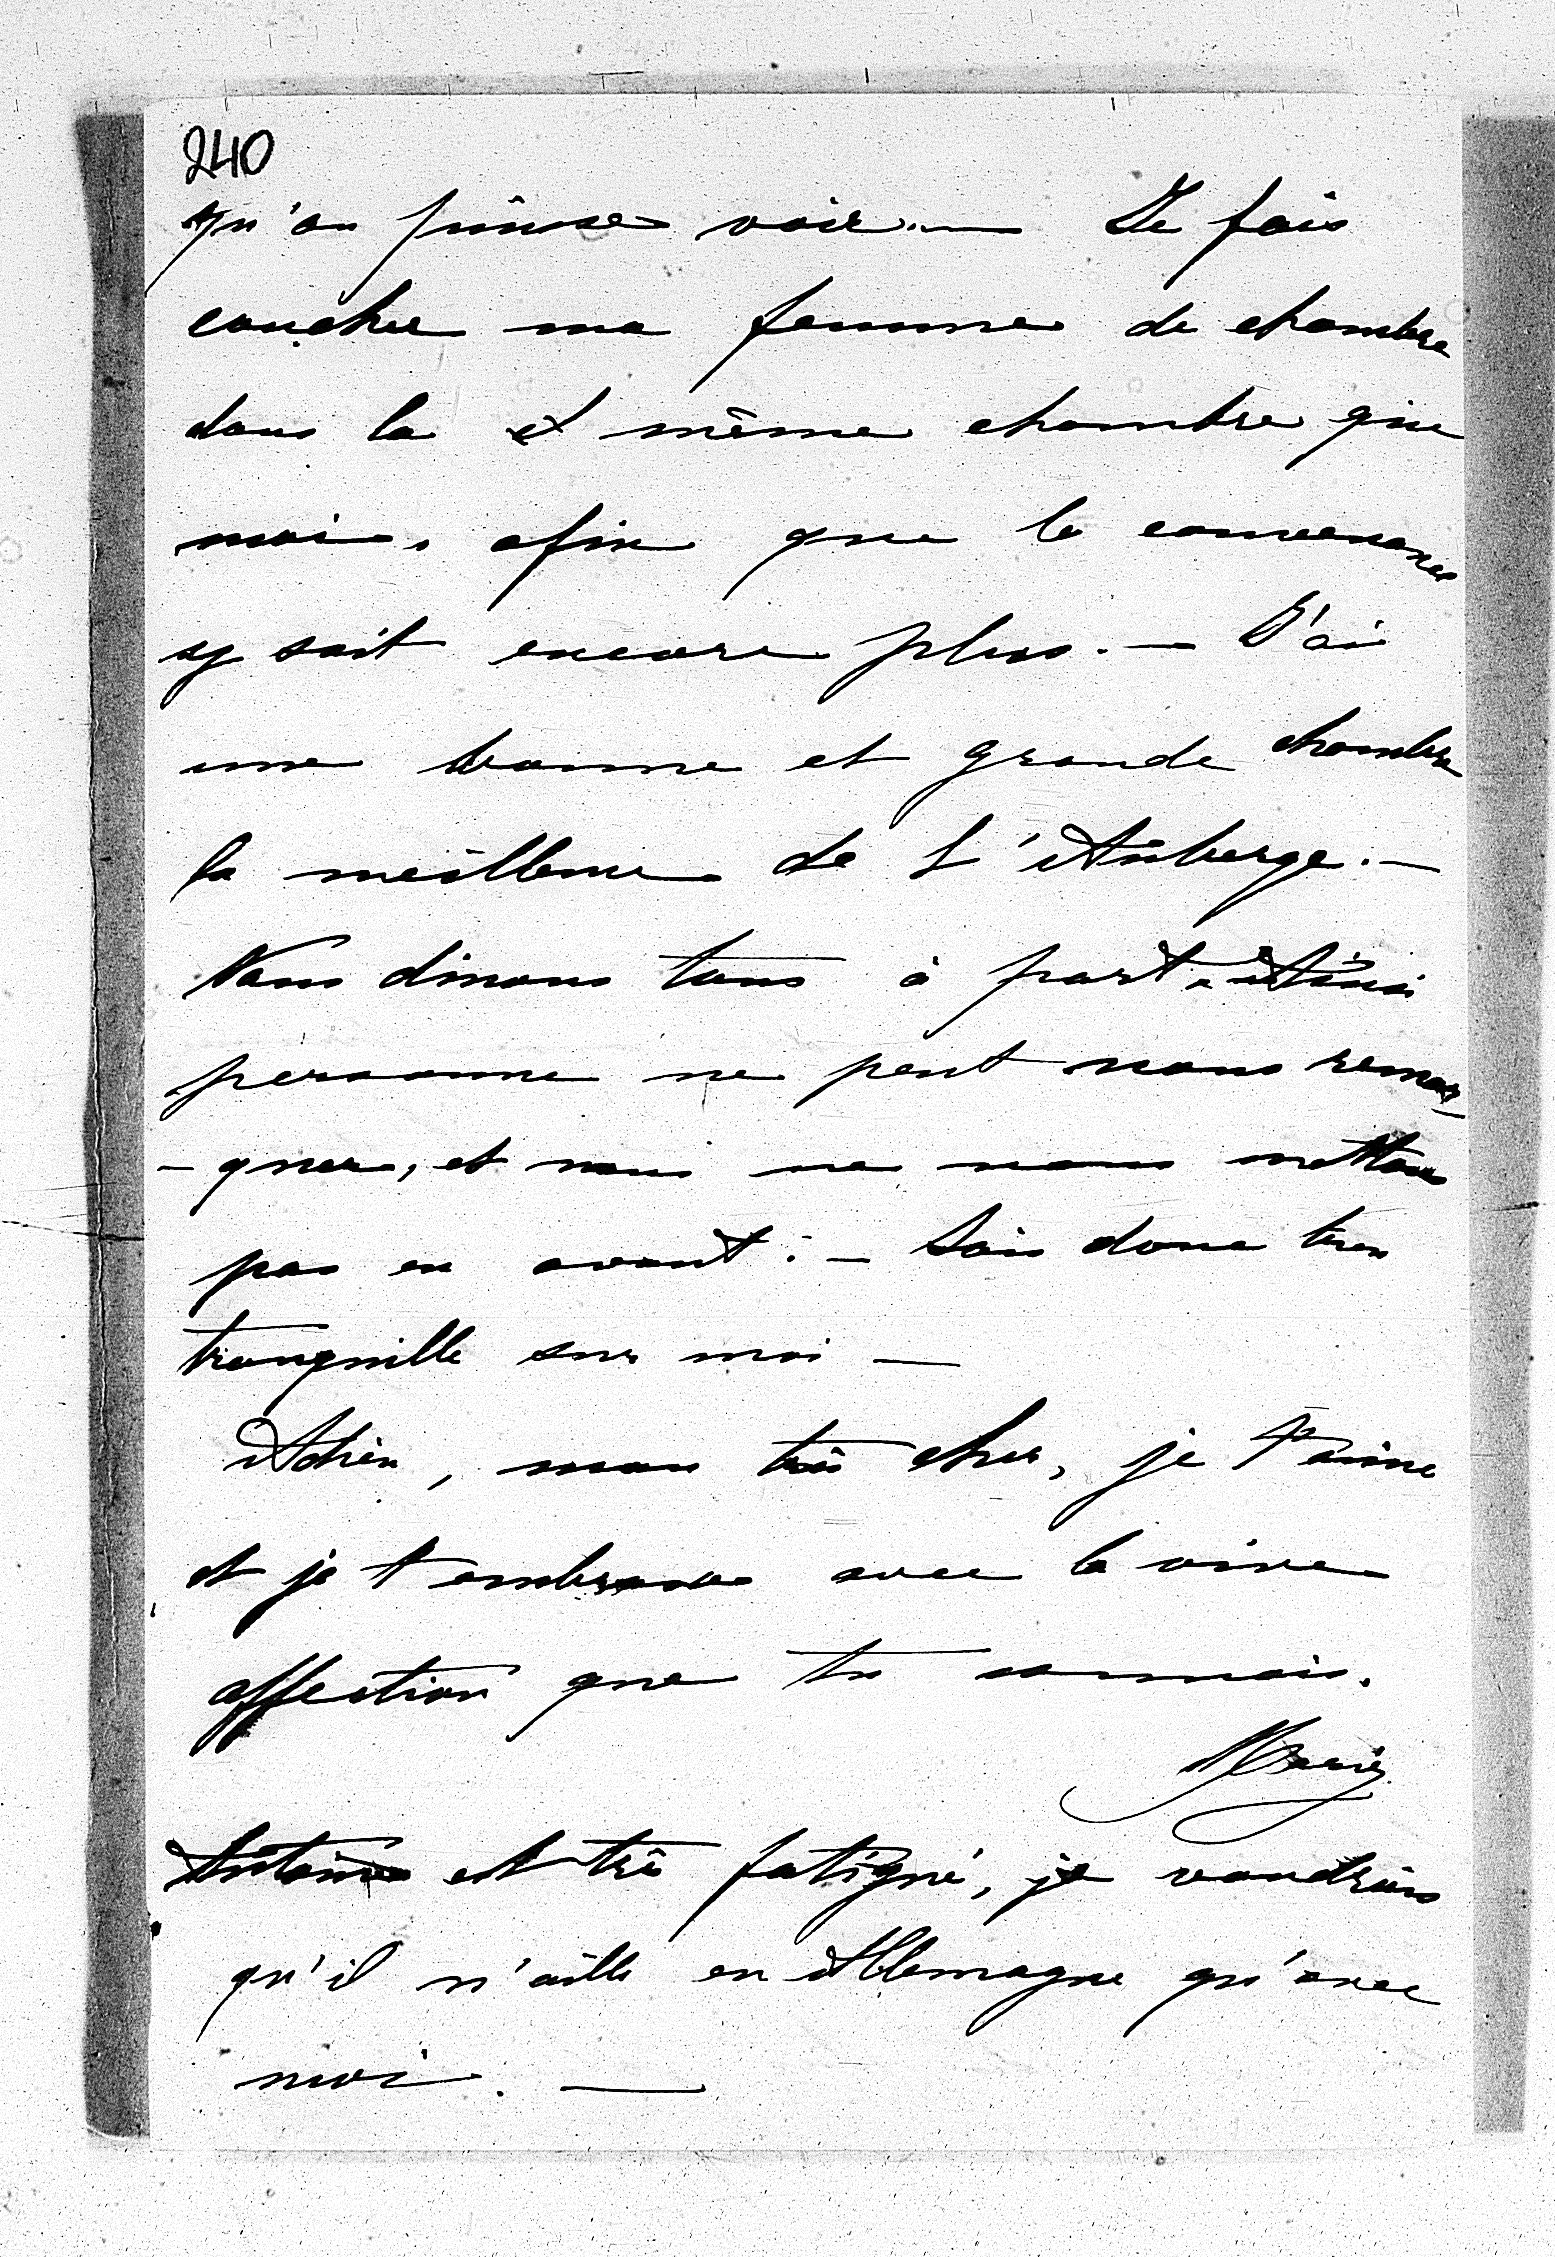 240
qu'on puisse voir. — Je fais
coucher ma femme de chambre
dans la même chambre que
moi, afin que la convenance
y soit encore plus. — J'ai
une bonne et grande chambre
la meilleure de L'Auberge. —
Nous dinons tous à part. Ainsi
personne ne peut nous remar-
-quer, et nous ne nous mettons
pas en avant. — Sois donc bien
tranquille sur moi —
Adieu, mon très cher, je t'aime
et je t'embrasse avec la vive
affection que tu connais.
Marie
Antoine est très fatigué, je voudrais
qu'il n'aille en Allemagne qu'avec
moi. —